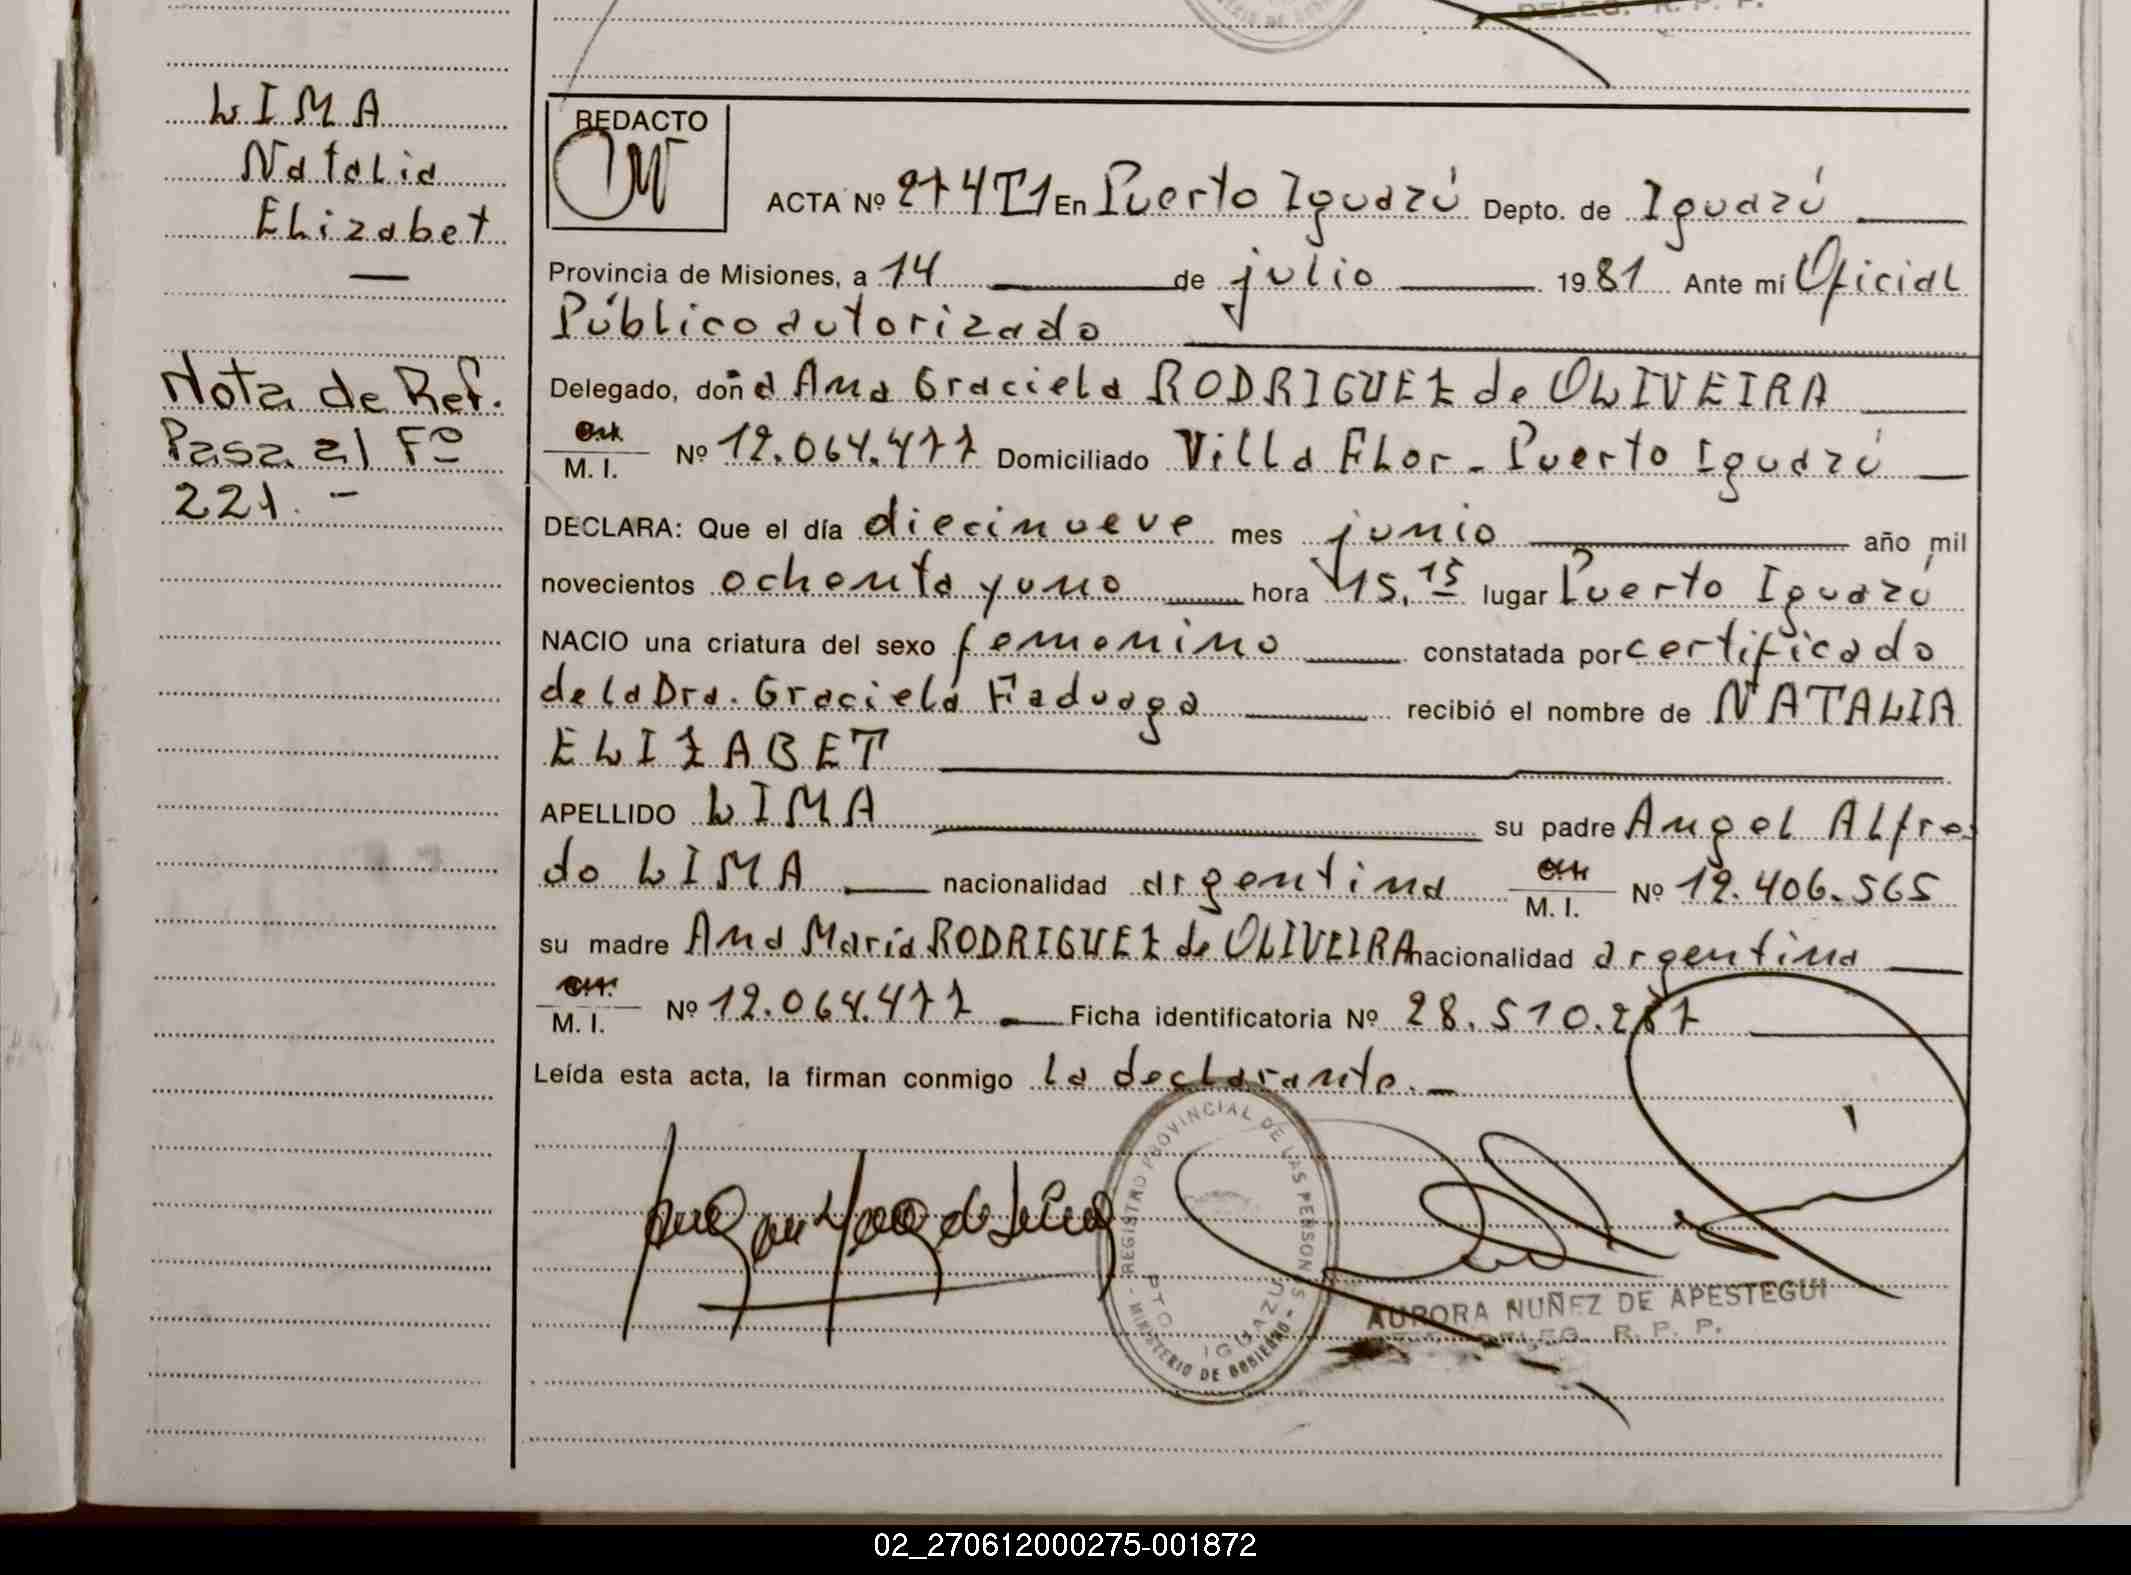 DELEG. R. P. P.
LIMA
Natalia
Elizabet
Nota de Ref.
Pasa al Fº
221.-
REDACTO
ACTA Nº 274T1 En Puerto Iguazú Depto. de Iguazú
Provincia de Misiones, a 14 de julio 1981 Ante mí Oficial
Público autorizado
Delegado, doña Ana Graciela RODRIGUEZ de OLIVEIRA
M. I. Nº 12.064.477 Domiciliado Villa Flor - Puerto Iguazú
DECLARA: Que el día diecinueve mes junio año mil
novecientos ochenta y uno hora 15,15 lugar Puerto Iguazú
NACIO una criatura del sexo femenino constatada por certificado
de la Dra. Graciela recibió el nombre de NATALIA
ELIZABET
APELLIDO LIMA su padre Angel Alfre
do LIMA nacionalidad argentina M. I. Nº 12.406.565
su madre Ana María RODRIGUEZ de OLIVEIRA nacionalidad argentina
M. I. Nº 12.064.477 Ficha identificatoria Nº 28.510.287
Leída esta acta, la firman conmigo la declarante.-
REGISTRO PROVINCIAL DE LAS PERSONAS
PTO. IGUAZU
- MINISTERIO DE GOBIERNO -
AURORA NUÑEZ DE APESTEGUI
DELEG. R. P. P.
02_270612000275-001872